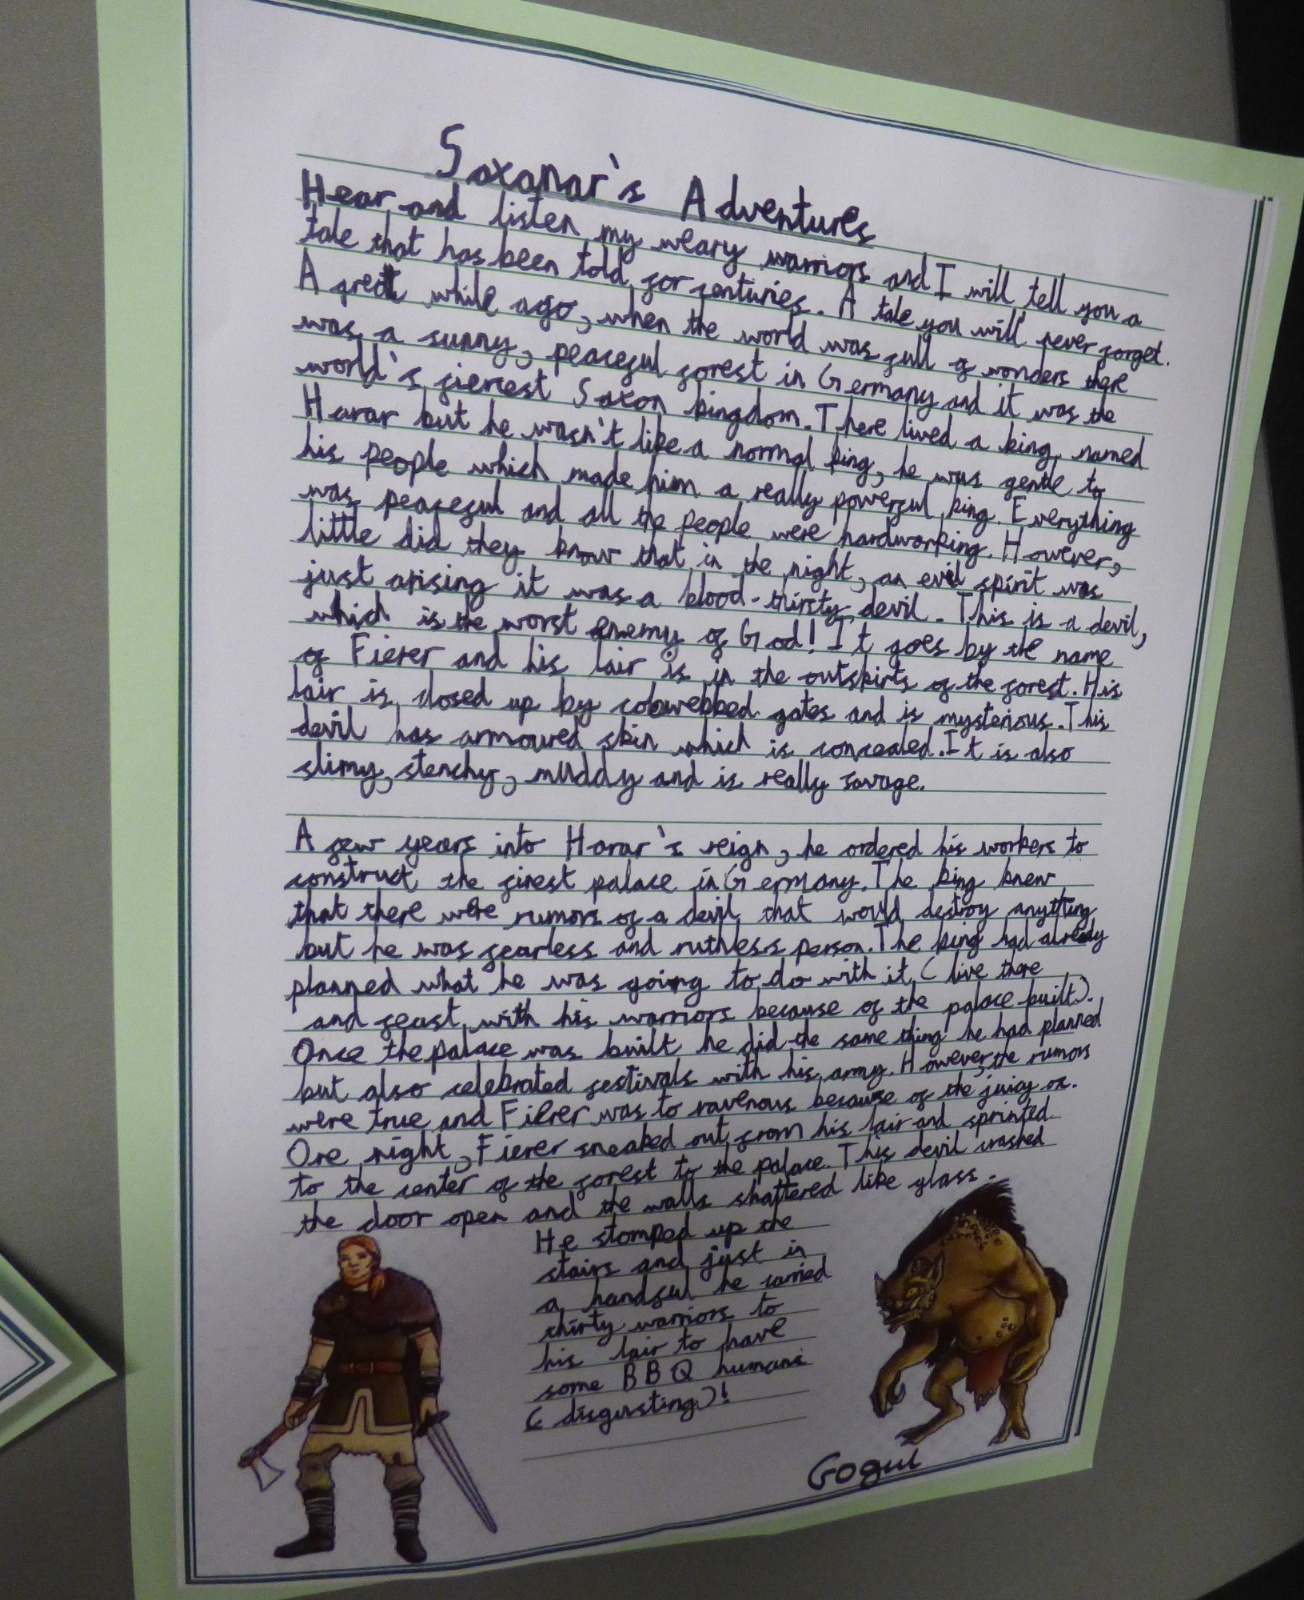 Saxanar's Adventures
Hear and listen my weary warriors and I will tell you a
tale that has been told for centuries. A tale you will never forget.
A great while ago, when the world was full of wonders there
was a sunny, peaceful forest in Germany and it was the
world's fiercest Saxon kingdom. There lived a king, named
Harar but he wasn't like a normal king, he was gentle to
his people which made him a really powerful king. Everything
was peaceful and all the people were hardworking. However,
little did they know that in the night, an evil spirit was
just arising it was a blood-thirsty devil. This is a devil,
which is the worst enemy of God! It goes by the name
of Fierer and his lair is in the outskirts of the forest. His
lair is closed up by cobwebbed gates and is mysterious. This
devil has armoured skin which is concealed. It is also
slimy, stenchy, muddy and is really savage.
A few years into Harar's reign, he ordered his workers to
construct the finest palace in Germany. The king knew
that there were rumors of a devil that would destroy anything
but he was fearless and ruthless person. The king had already
planned what he was going to do with it ( live there
and feast with his warriors because of the palace built).
Once the palace was built he did the same thing he had planned
but also celebrated festivals with his army. However, the rumors
were true and Fierer was to ravenous because of the juicy ox.
One night, Fierer sneaked out from his lair and sprinted
to the center of the forest to the palace. This devil crashed
the door open and the walls shattered like glass.
He stomped up the
stairs and just in
a handful he carried
thirty warriors to
his lair to have
some BBQ humans
( disgusting)!
Gogul